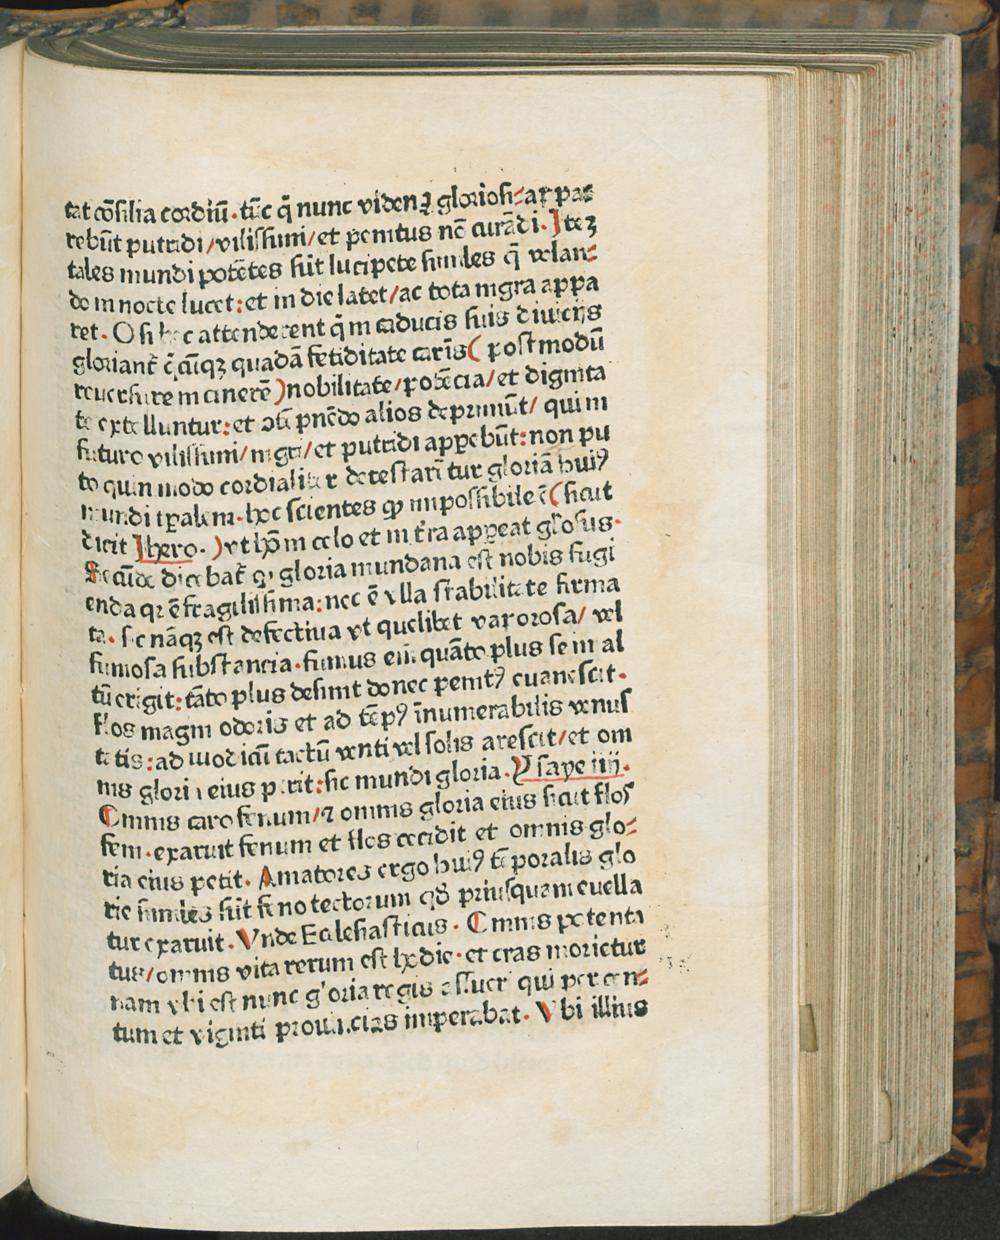 tat cōsilia cordiū. tūc q̄ nunc vident̄ gloriosi-appa-
rebūt putridi/vilissimi/et penitus nō curādi. Itez
tales mundi potētes sūt lucipete similes q̄ velan-
do in nocte lucet: et in die latet/ac tota nigra appa
ret. O si hoc attenderent q̄ in caducis suis diuicijs
gloriant̄ quadā fetiditate carīs (postmodū
reuersure in cinerē) nobilitate/potēcia/et dignita
te extelluntur: et alios deprimūt/ qui in
futuro vilissimi/nigri/et putridi apparebūt: non pu
to quin modo cordialiter detestarētur gloriā huiꝰ
mundi tp̄alem. hoc scientes ꝙ impossibile ē (sicut
dicit Jhero.) vt hō in celo et in t̄ra appareat gl̄osus.
dicebat̄ gloria mundana est nobis fugi
enda qr ē fragilissima: nec ē vlla stabilitate firma
ta. sic nāqꝫ est defectiua vt quelibet vaporosa/ vel
fumosa substancia. fumus eīm quāto plus se in al
tū erigit: tāto plus desinit donec penitꝰ euanescit.
flos magni odoris et ad tēpꝰ īnumerabilis venus
tatis: ad modicū tactū venti vel solis arescit/et om
nis gloria eius perit: sic mundi gloria. Ysaye iiij.
Omnis caro fenum/ ⁊ omnis gloria eius sicut flos
feni. exaruit fenum et flos cecidit et omnis glo-
ria eius perit. Amatores ergo huiꝰ tēporalis glo
rie similes sūt feno tectorum qd̄ priusquam euella
tur exaruit. Vnde Ecclesiasticus. Omnis potenta
tus/omnis vita rerum est hodie. et cras morietur
nam vbi est nunc gloria regis qui per cen-
tum et viginti prouincias imperabat. Vbi illius